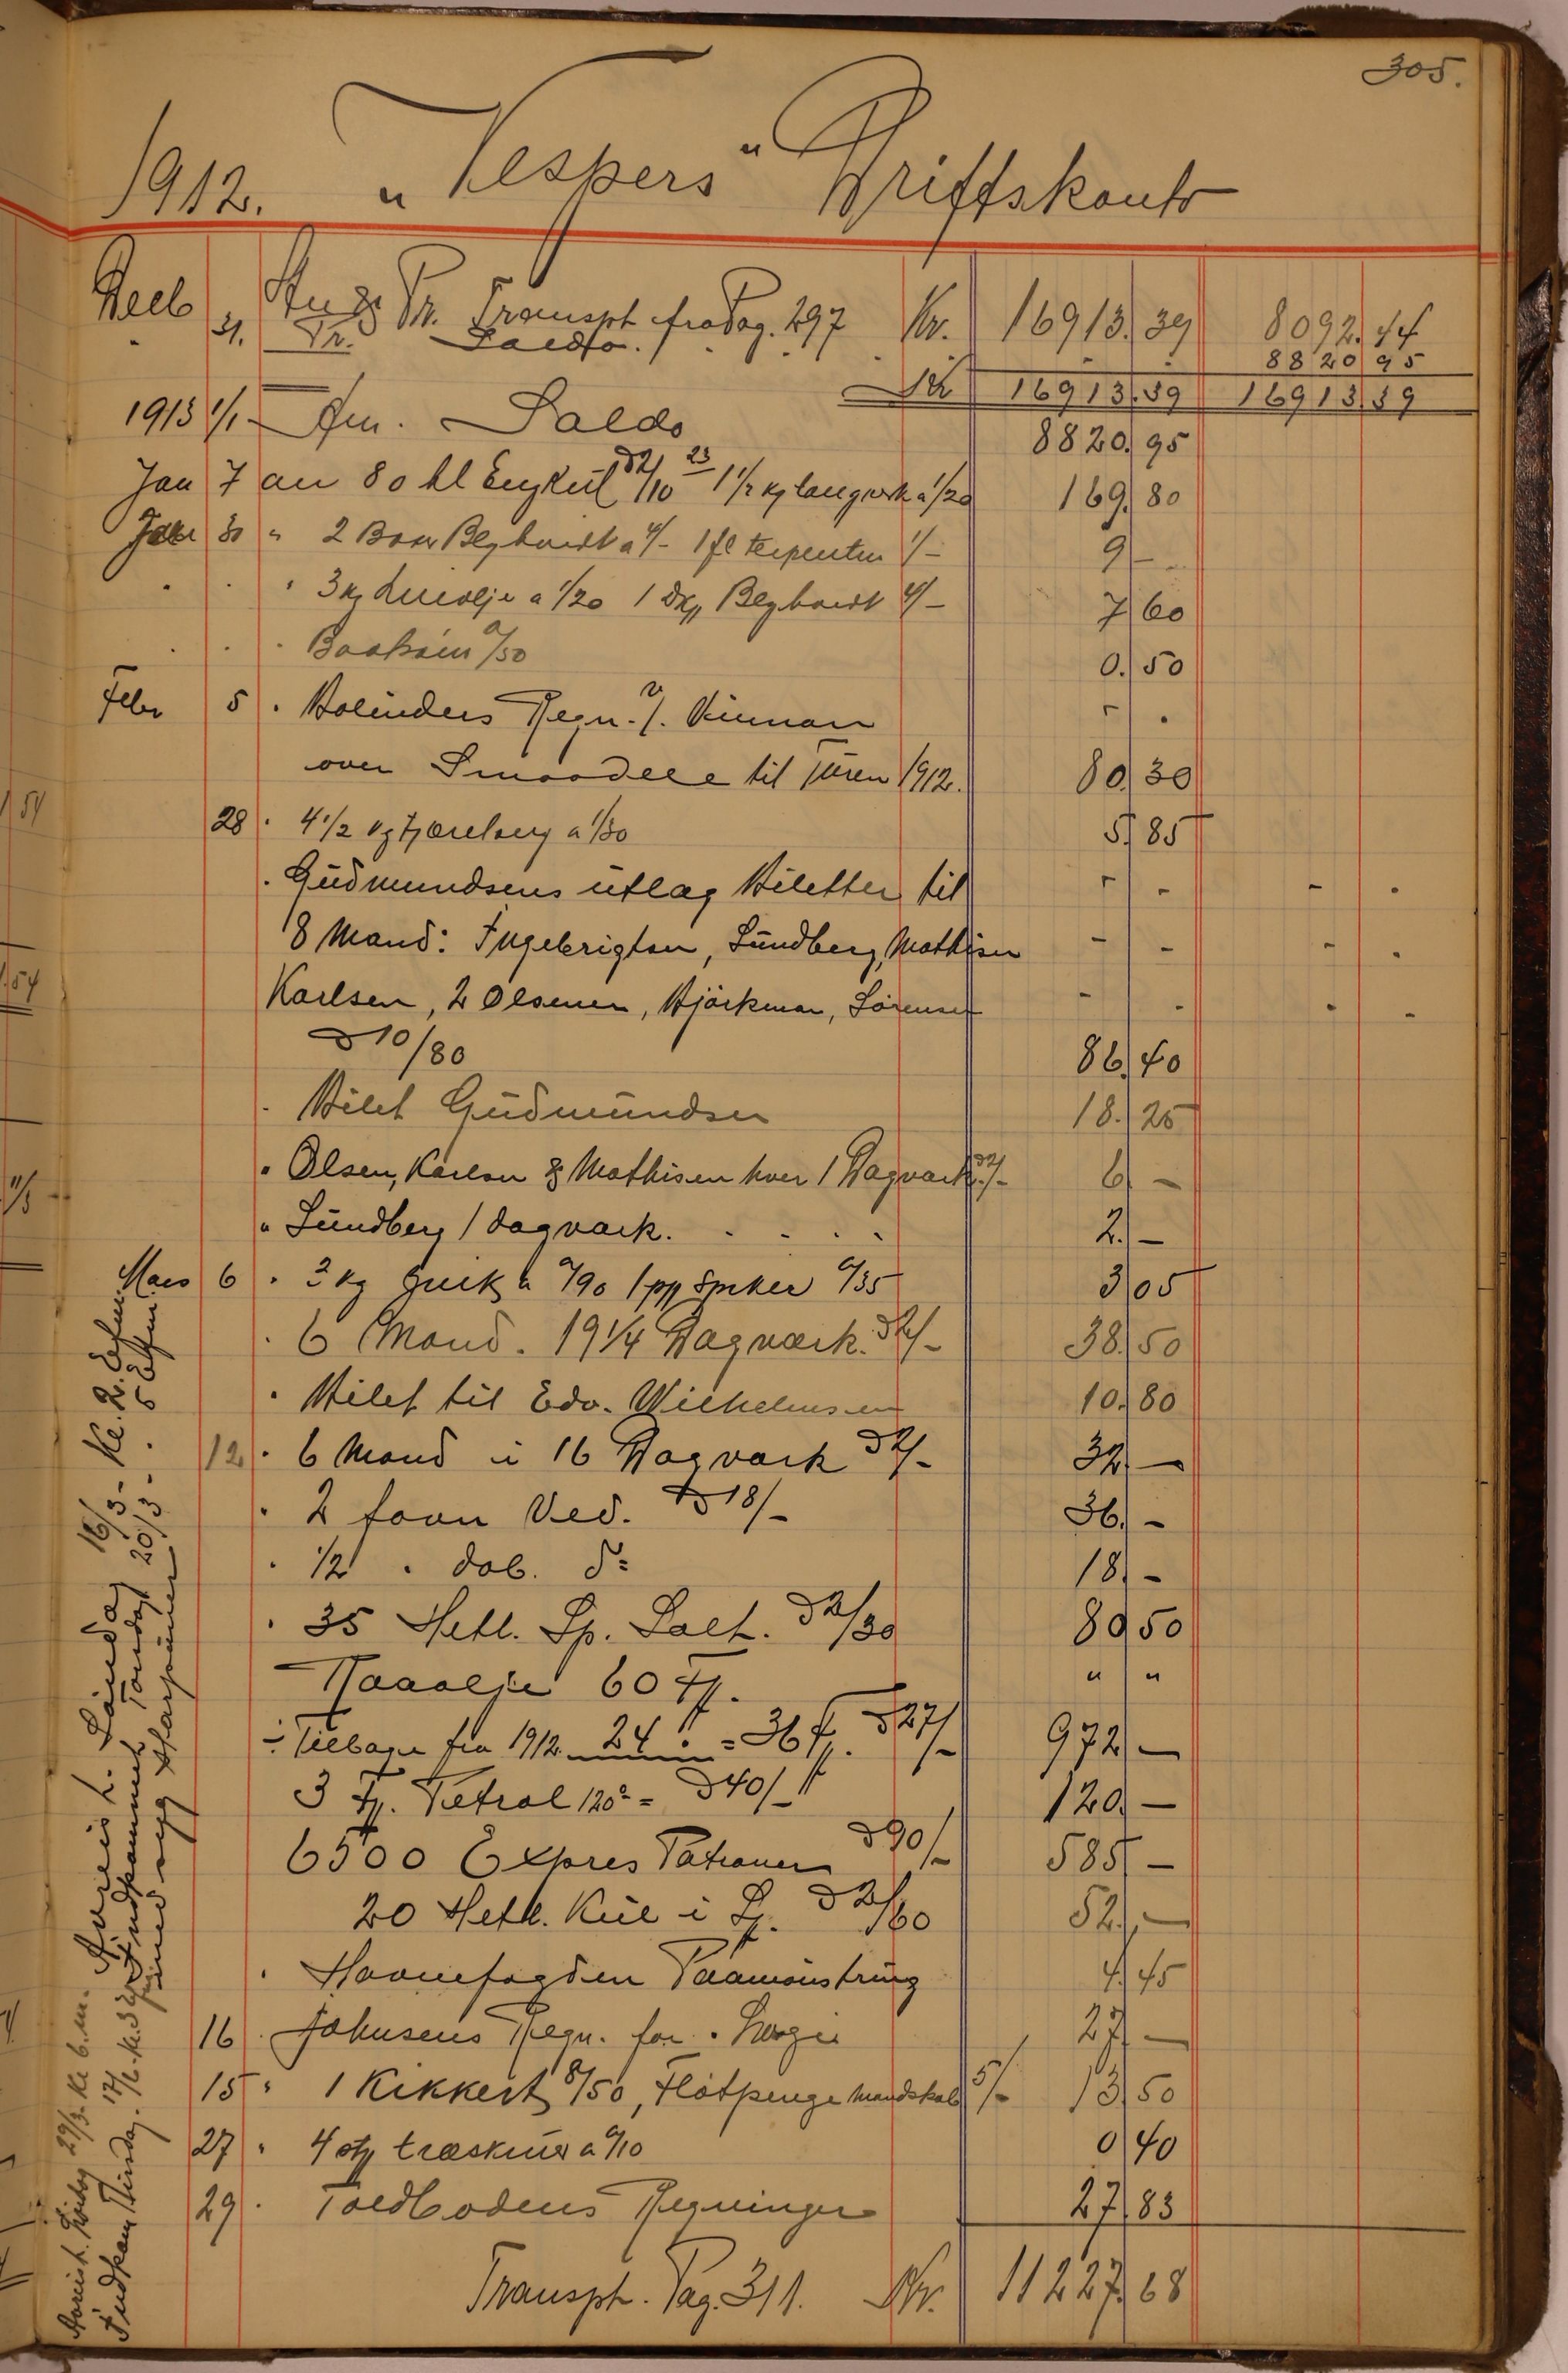 305.
1912. „Vespers" Driftskonto
Decb 31. An & Pr. Transpt fra Pag. 297 Kr. 16913.39 8092.44
" Pr. Saldo. 8820 95
Kr 16913.39 16913.39
1913 1/1 An. Saldo 8820.95
Jan 7 an 80 hl Eng Kul à 2/10 1 1/2 kg langverk a 1/20 169.80
Jan 30 " 2 Boxr Blyhvidt a 4/- 1 fl terpentin 1/- 9 -
" 3 kg Linolje a 1/20 1 Blyhvidt 4/- 7 60
0/50 0.50
Febr 5 . Bolinders Regn. Kinman
over Smaadele til Turen 1912. 80.30
28 . 4 1/2 kg a 1/30 5.85
. Gudmundsens utlæg Biletter til
8 Mand: Ingebrigtsen, Lundberg, Mathisen
Karlsen, 2 Olsener, Björkman, Sørensen
à 10/80 86.40
. Bilet Gudmundsen 18.25
" Olsen, Karlsen & Mathisen hver 1 Dagværk à 2/- 6 -
" Lundberg 1 dagværk. . . . . 2.-
Mars 6 . 3 kg a 0/90 1 pk Spiker 0/35 3 05
. 6 Mand. 19 1/4 Dagværk. à 2/- 38.50
. Bilet til Edv. Wilhelmsen 10.80
12 . 6 Mand i 16 Dagværk à 2/- 32 -
. 2 favn Ved. à 18/- 36. -
. 1/2 . dob. do 18. -
. 35 Hektl. Sp. Salt. à 2/30 80 50
Raaolje 60 Ff. " "
÷ Tilbage fra 1912. 24 " = 36 Ff. à 27/- 972 -
3 Ff. Petrol 120° = à 40/- 120. -
6500 Expres Patroner à 90/- 585 -
20 Hektl. Kul i Sp. à 2/60 52. -
. Havnefogden Paamönstring 4.45
16 . Johnsens Regn. for . 27 -
15 " 1 Kikkert 8/50, Flötpenge mandskab 5/- 13.50
27 " 4 stk træskruer a 0/10 0 40
29 . Toldbodens Regninger 27.83
Transpt. Pag. 311. Kr. 11227.68
Avreist. Söndag 16/3 - Kl. 2. Efm.
Indkommet Torsdag 20/3 - " 5 Efm
med syg Harpuner
Avreist. 29/3. Kl. 6. m.
Indkom Tirsdag.